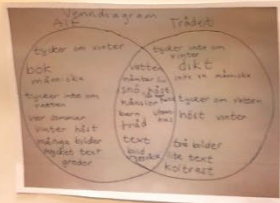 Venndiagram
Trädet
tycker om vinter
bok
människa
tycker inte om
vatten
vinter höst
många bilder
mycket text
grader
vatten
snö höst
känslor
barn
träd
text
bild
tycker inte om
vinter
dikt
inte en människa
tycker om vatten
höst vinter
två bilder
lite text
koltrast